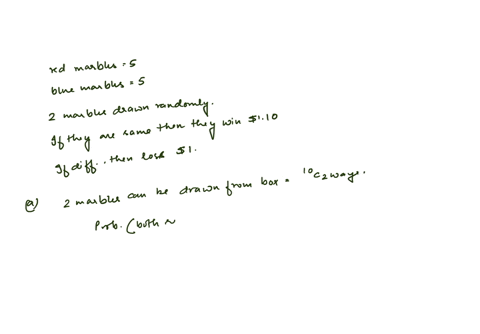 red marbles = 5
blue marbles = 5
2 marbles drawn randomly.
If they are same then they win $1.10
If diff.. then loss $1.
(a) 2 marbles can be drawn from box = ¹⁰C₂ ways.
Prob. (both